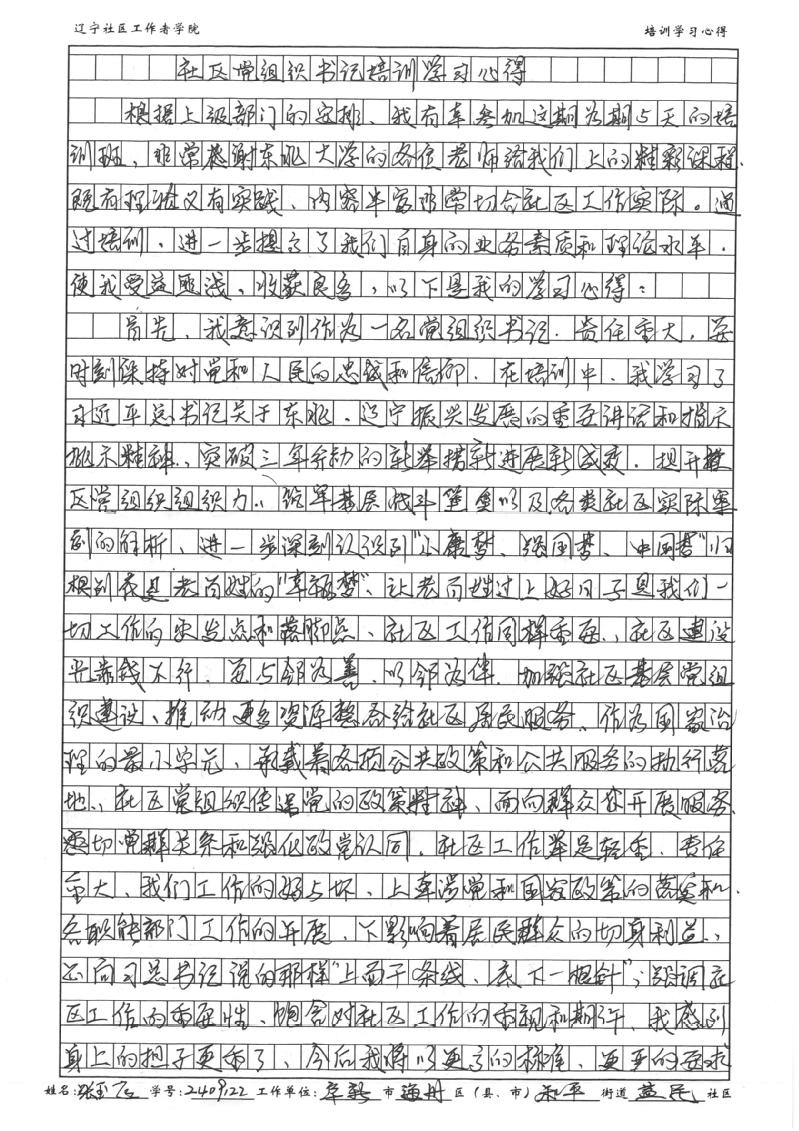 辽宁社区工作者学院 培训学习心得
社区党组织书记培训学习心得
根据上级部门的安排、我有幸参加这期为期5天的培
训班、非常感谢东北大学的各位老师给我们上的精彩课程.
既有理论又有实践、内容丰富非常切合社区工作实际。通
过培训、进一步提高了我们自身的业务素质和理论水平.
使我受益匪浅、收获良多,以下是我的学习心得:
首先、我意识到作为一名党组织书记.责任重大,要
时刻保持对党和人民的忠诚和信仰.在培训中.我学习了
习近平总书记关于东北、辽宁振兴发展的重要讲话和指示
批示精神、突破三年行动的新举措新进展新成效.提升社
区党组织组织力、 基层战斗堡垒以及各类社区实际案
例的解析、进一步深刻认识到"小康梦、强国梦、中国梦"归
根到底是老百姓的"幸福梦"、让老百姓过上好日子是我们一
切工作的出发点和落脚点、社区工作同样重要、社区建设
光靠钱不行.要与邻为善、以邻为伴.加强社区基层党组
织建设、推动更多资源整合给社区居民服务.作为国家治
理的最小单元、承载着各项公共政策和公共服务的执行落
地、社区党组织传递党的政策精神、面向群众 开展服务
密切党群关系和强化政党认同.社区工作举足轻重、责任
重大、我们工作的好与坏、上牵涉党和国家政策的落实和.
各职能部门工作的开展、下影响着居民群众的切身利益、
正向习总书记说的那样"上面千条线、底下一根针";强调社
区工作的重要性、饱含对社区工作的重视和期许、我感到
身上的担子更重了、今后我将以更高的标准、更严的要求
姓名: 学号:2409122 工作单位:阜新 市 海州 区(县、市) 和平 街道 益民 社区